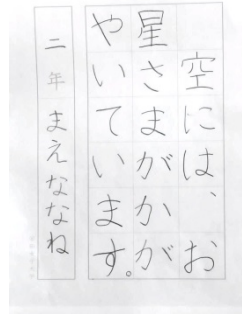 空には、お
星さまがかが
やいています。
二年まえななね